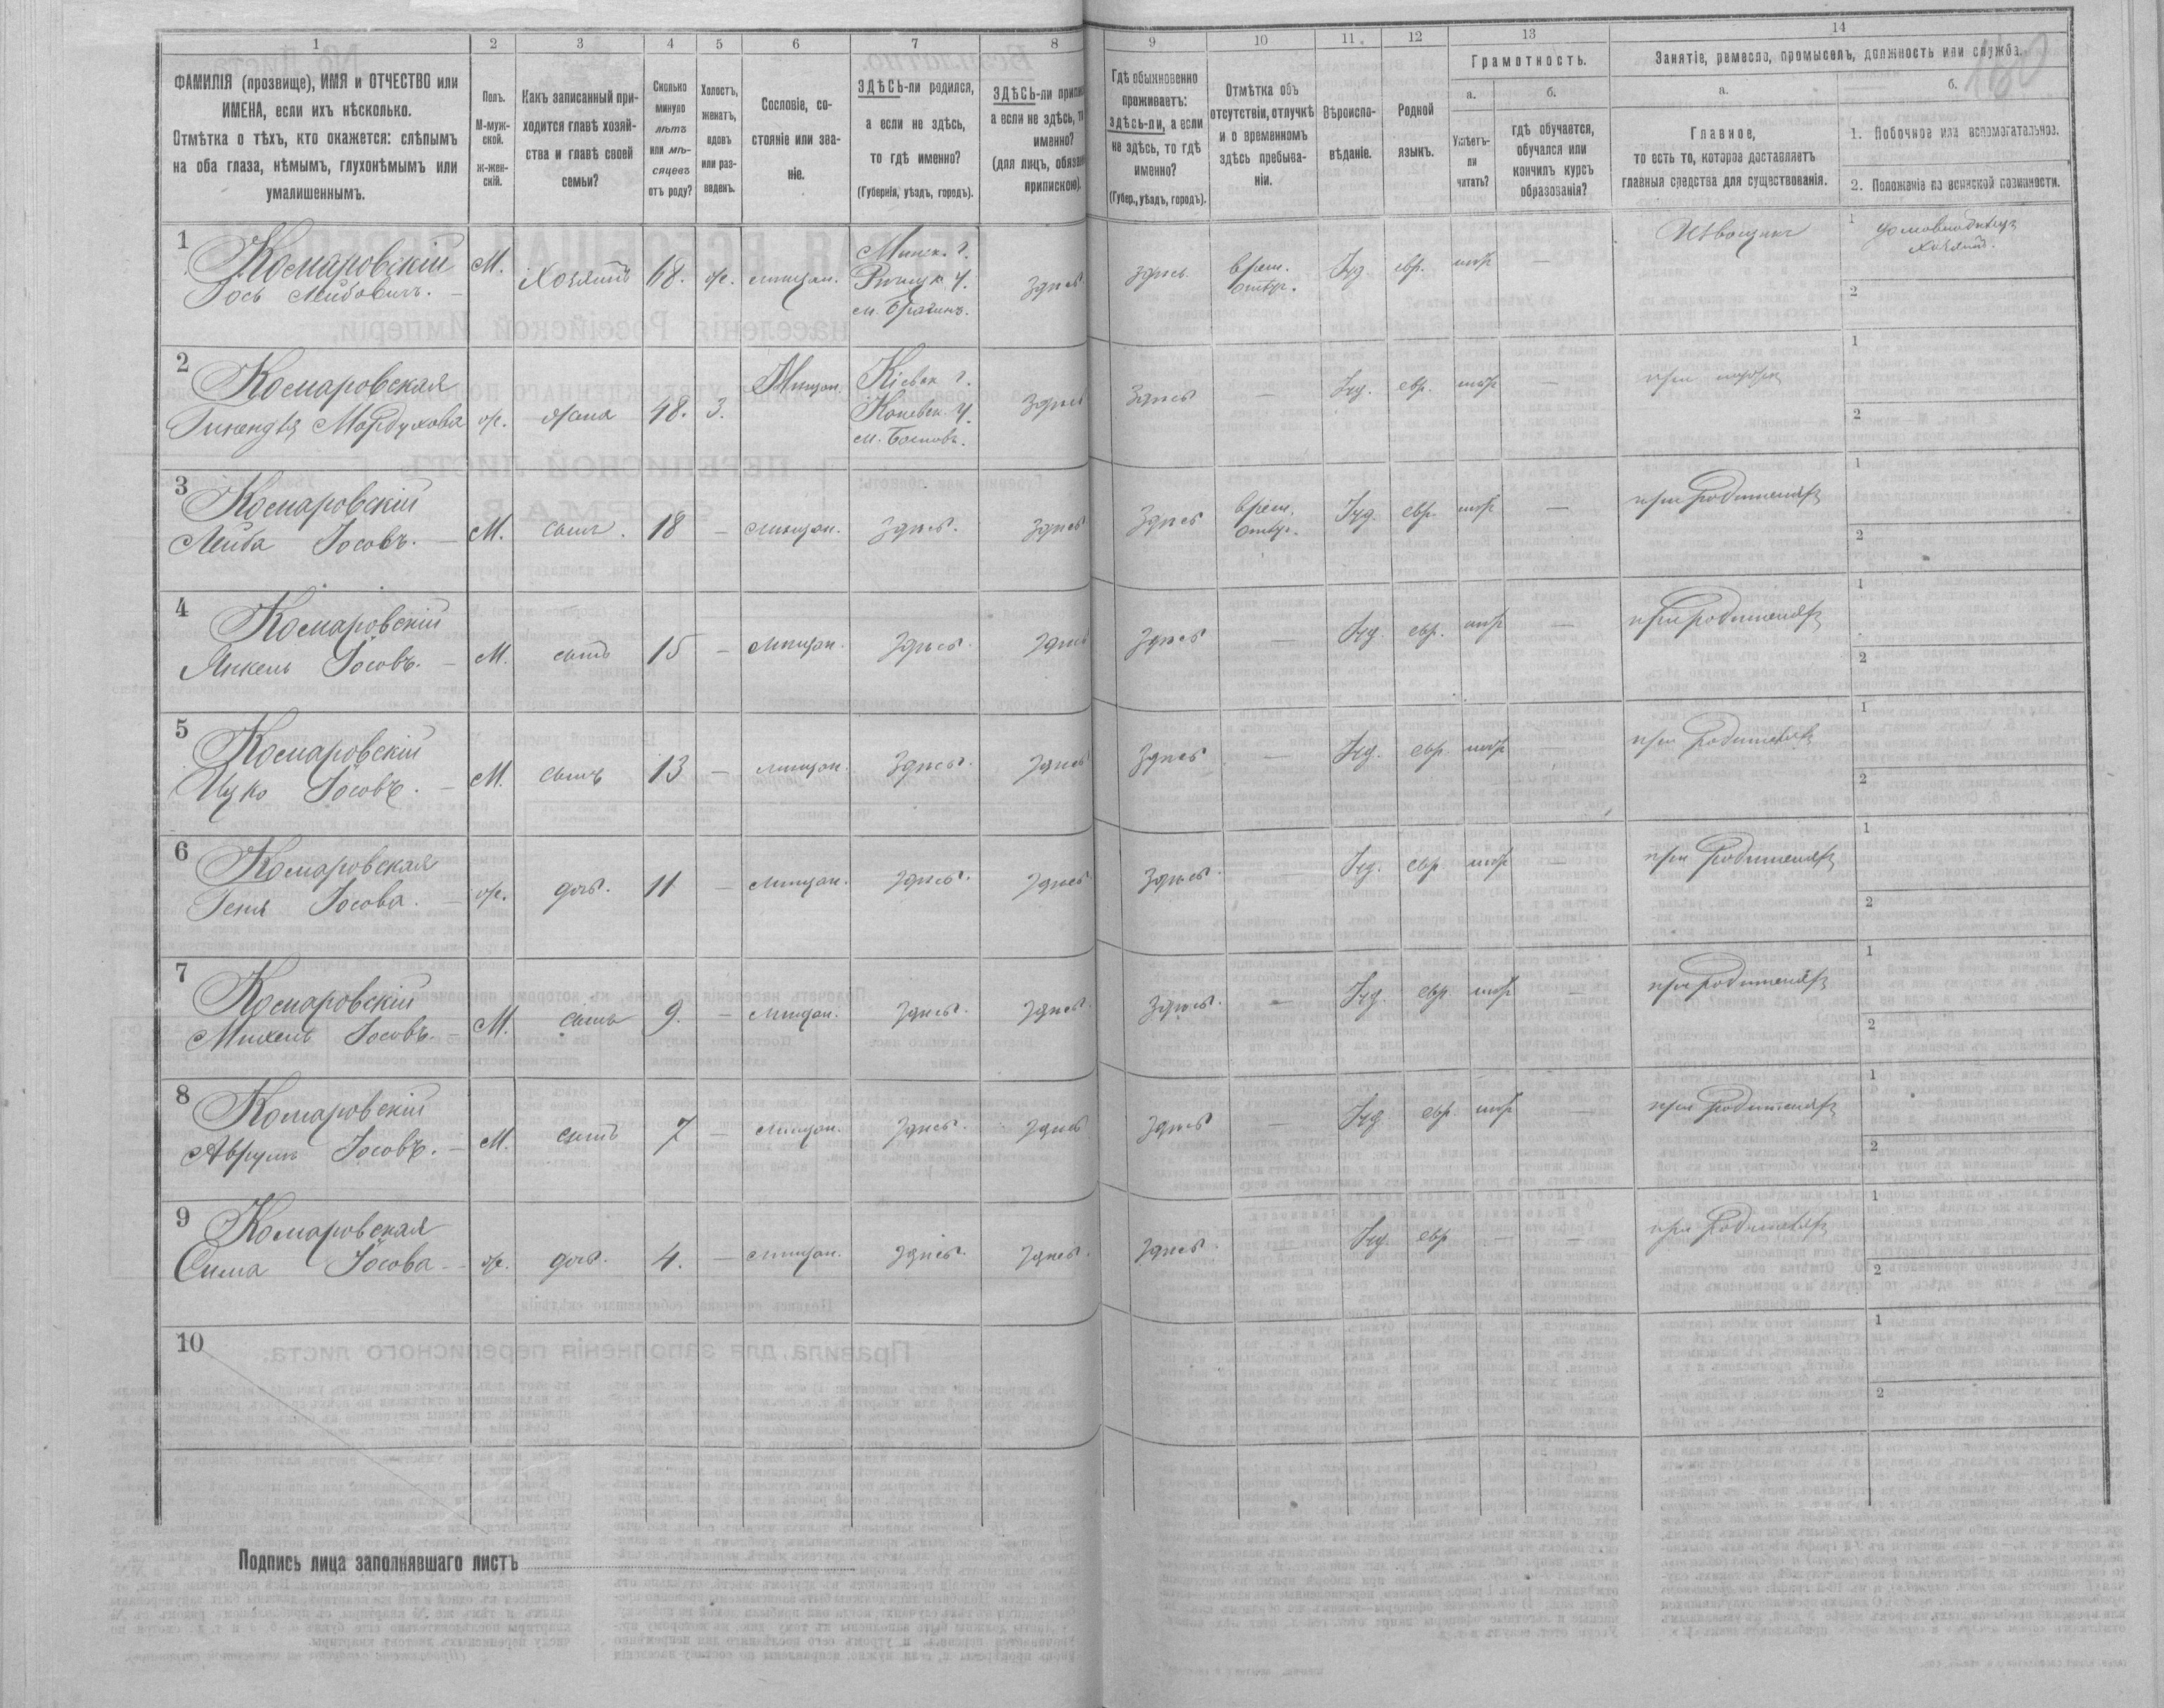 1 2 3 4 5 6 7 8 9 10 11 12 13 14
ФАМИЛІЯ (прозвище), ИМЯ и ОТЧЕСТВО или
ИМЕНА, если ихъ нѣсколько.
Отмѣтка о тѣхъ, кто окажется: слѣпымъ
на оба глаза, нѣмымъ, глухонѣмымъ или
умалишеннымъ.
Полъ.
М-муж-
ской.
Ж-жен-
скій.
Какъ записанный при-
ходится главѣ хозяй-
ства и главѣ своей
семьи?
Сколько
минуло
лѣтъ
или мѣ-
сяцевъ
отъ роду?
Холостъ,
женатъ,
вдовъ
или раз-
веденъ.
Сословіе, со-
стояніе или зва-
ніе.
ЗДѢСЬ-ли родился,
а если не здѣсь,
то гдѣ именно?
(Губернія, уѣздъ, городъ).
ЗДѢСЬ-ли
а если не здѣсь,
именно?
(для лицъ,
припискою).
Гдѣ обыкновенно
проживаетъ:
здѣсь-ли, а если
не здѣсь, то гдѣ
именно?
(Губер., уѣздъ, городъ).
Отмѣтка объ
отсутствіи, отлучкѣ
и о временномъ
здѣсь пребыва-
ніи.
Вѣроиспо-
вѣданіе.
Родной
языкъ.
Грамотность.
а.
Умѣетъ-
ли
читать?
б.
гдѣ обучается,
обучался или
кончилъ курсъ
образованія?
Занятіе, ремесло, промыселъ, должность или служба.
а.
Главное,
то есть то, которое доставляетъ
главныя средства для существованія.
б.
1. Побочное или вспомогательное.
2. Положеніе по воинской повинности.
1 Комаровскій М. Хозяинъ ж. мищан. Минск. г. здѣсь здѣсь врем. Іуд евр. Извощикъ 1
Іось Лейбовичъ. у. отлуч. 2
м. Брагинъ.
2 Комаровская ж. жена 48. З. Мищан. Кіевск г. здѣсь здѣсь — Іуд. евр. — при 1
Мордухова у. 2
м.
3 Комаровскій М. сынъ. 18 — мищан. здѣсь. здѣсь здѣсь врем. Іуд. евр. — при родителяхъ 1
Лейба Іосовъ. отлуч. 2
4 Комаровскій М. сынъ 15 — мищан. здѣсь. здѣсь здѣсь — Іуд. евр. — при родителяхъ 1
Янкель Іосовъ. 2
5 Комаровскій М. сынъ 13 — мищан. здѣсь. здѣсь здѣсь — Іуд. евр. — при родителяхъ 1
Ицко Іосовъ. 2
6 Комаровская ж. дочь. 11 — мищан. здѣсь. здѣсь здѣсь. — Іуд. евр. — при родителяхъ 1
Геня Іосова. 2
7 Комаровскій М. сынъ 9. — мищан. здѣсь. здѣсь. здѣсь. — Іуд. евр. — при родителяхъ 1
Михель Іосовъ. 2
8 Комаровскій М. сынъ 7 — мищан. здѣсь. здѣсь здѣсь — Іуд евр. — при родителяхъ 1
Аврумъ Іосовъ. 2
9 Комаровская ж. дочь. 4. — мищан. здѣсь. здѣсь. здѣсь. Іуд. евр — — при родителяхъ 1
Сима Іосова 2
10 1
2
Подпись лица заполнявшаго листъ